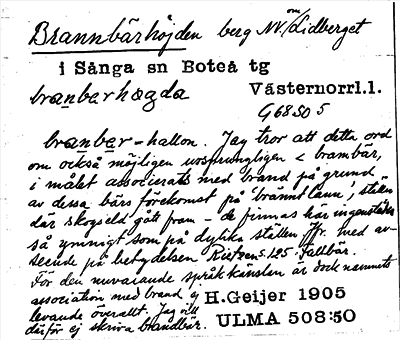 Brannbärhöjden berg NV om Lidberget
i Sånga sn Boteå tg
branbarhøgda Västernorrl.l.
G6850 5
branbær - hallon. Jag tror att detta ord
om också möjligen ursprungligen < brambär,
i målet associerats med brand på grund
av dessa bärs förekomst på 'bränntlann', ställen
där skogseld gått fram - de finnas här ingenstädes
så ymnigt som på dylika ställen. Jfr. med av-
seende på betydelsen Rietz s. 125. fallbär.
För den nuvarande språkkänslan är dock namnets
association med brand
levande överallt. Jag vill
därför ej skriva brandbär.
H.Geijer 1905
ULMA 508:50